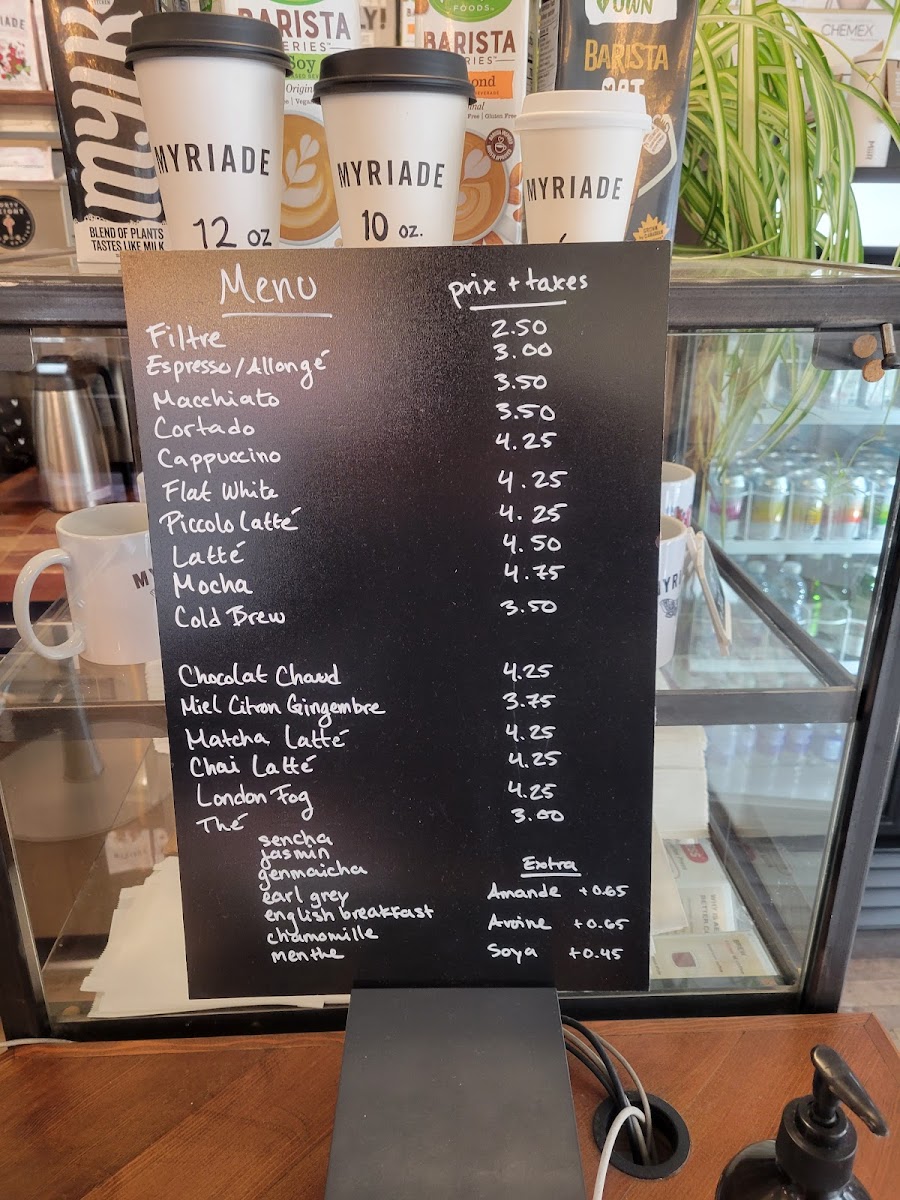 BARISTA
SERIES™
Soy
Origin
FOODS
BARISTA
SERIES™
BARISTA
OAT
CHEMEX
MYLK
BLEND OF PLANTS
TASTES LIKE MILK
MYRIADE
12 oz
MYRIADE
10 oz.
MYRIADE
Menu prix + taxes
Filtre 2.50
Espresso/Allongé 3.00
Macchiato 3.50
Cortado 3.50
Cappuccino 4.25
Flat White 4.25
Piccolo Latté 4.25
Latté 4.50
Mocha 4.75
Cold Brew 3.50
Chocolat Chaud 4.25
Miel Citron Gingembre 3.75
Matcha Latté 4.25
Chai Latté 4.25
London Fog 4.25
Thé 3.00
sencha
jasmin
genmaicha
earl grey
english breakfast
chamomille
menthe
Extra
Amande +0.65
Avoine +0.65
Soya +0.45